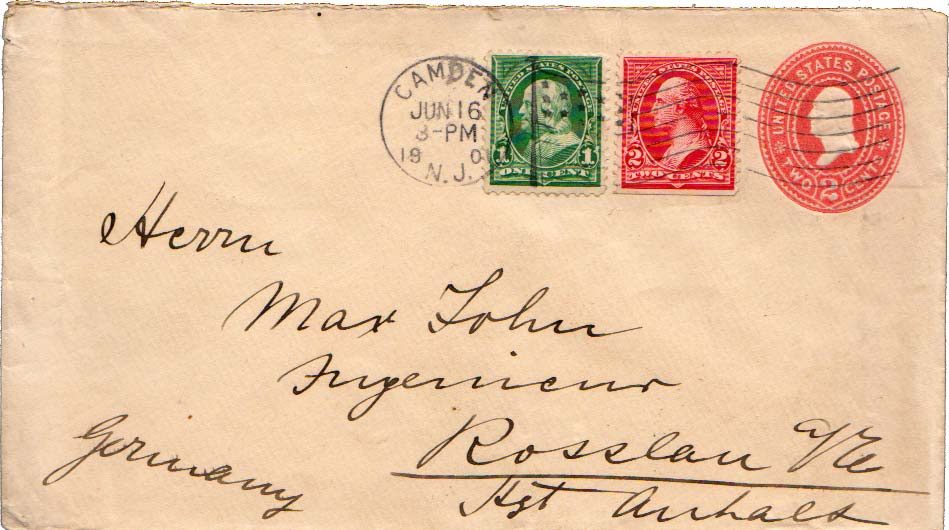 CAMDEN
JUN 16
3-PM
19 0
N.J.
UNITED STATES POSTAGE
1 1
ONE CENT
UNITED STATES POSTAGE
2 2
TWO CENTS
UNITED STATES POSTAGE
TWO 2 CENTS
Herrn
Max John
Ingenieur
Rosslau a/E
Hgt Anhalt
Germany